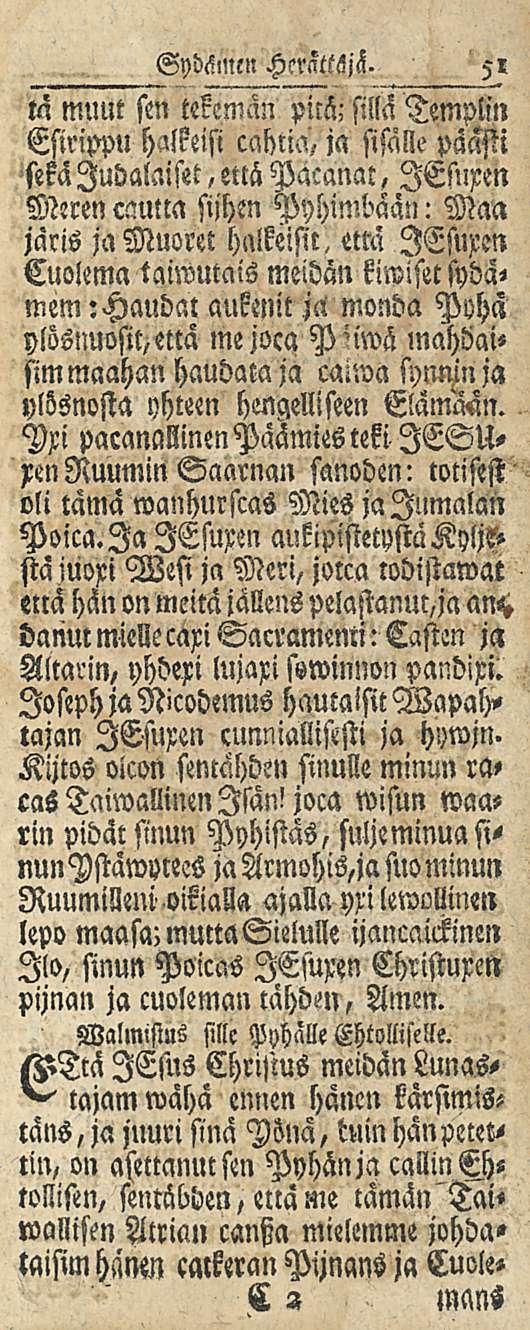 Sydämen Herättäjä. 51
tä muut sen tekemän pitä; sillä Templin
Esirippu halkeisi cahtia, ja sisälle pääsit
sekä Judalaiset, että Pacanat, JEsuxen
Meren cautta sijhen Pyhimbään: Maa
järis ja Muoret halkeisit, että JEsuxen
Cuolema taiwutais meidän kiwiset sydä-
mem: Haudat aukenit ja monda Pyhä
ylösnuosit, että me joca Päiwä mahdai-
sim maahan haudata ja caiwa synnin ja
ylösnosta yhteen hengelliseen Elämään.
Yxi pacanallinen Päämies teki JESU-
xen Ruumin Saarnan sanoden: totisest
oli tämä wanhurscas Mies ja Jumalan
Poica. Ja JEsuxen aukipistetystä Kylje-
stä juoxi Wesi ja Meri, jotca todistawat
että hän on meitä jällens pelastanut, ja an-
danut mielle caxi Sacramenti: Casten ja
Altarin, yhdexi lujaxi sowinnon pandixi.
Joseph ja Nicodemus hautaisit Wapah-
tajan JEsuxen cunniallisesti ja hywjn.
Kijtos olcon sentähden sinulle minun ra-
cas Taiwallinen Isän! joca wisun waa-
rin pidät sinun Pyhistäs, sulje minua si-
nun Ystäwytees ja Armohis, ja suo minun
Ruumilleni oikialla ajalla yxi lewollinen
lepo maasa; mutta Sielulle ijancaickinen
Ilo, sinun Poicas JEsuxen Christuxen
pijnan ja cuoleman tähden, Amen.
Walmistus sille Pyhälle Ehtolliselle.
ETtä JEsus Christus meidän Lunas-
tajam wähä ennen hänen kärsimis-
täns, ja juuri sinä Yönä, kuin hän petet-
tin, on asettanut sen Pyhän ja callin Eh-
tollisen, sentähden, että me tämän Tai-
wallisen Atrian canßa mielemme johda-
taisim hänen catkeran Pijnans ja Cuole-
C 2 mans